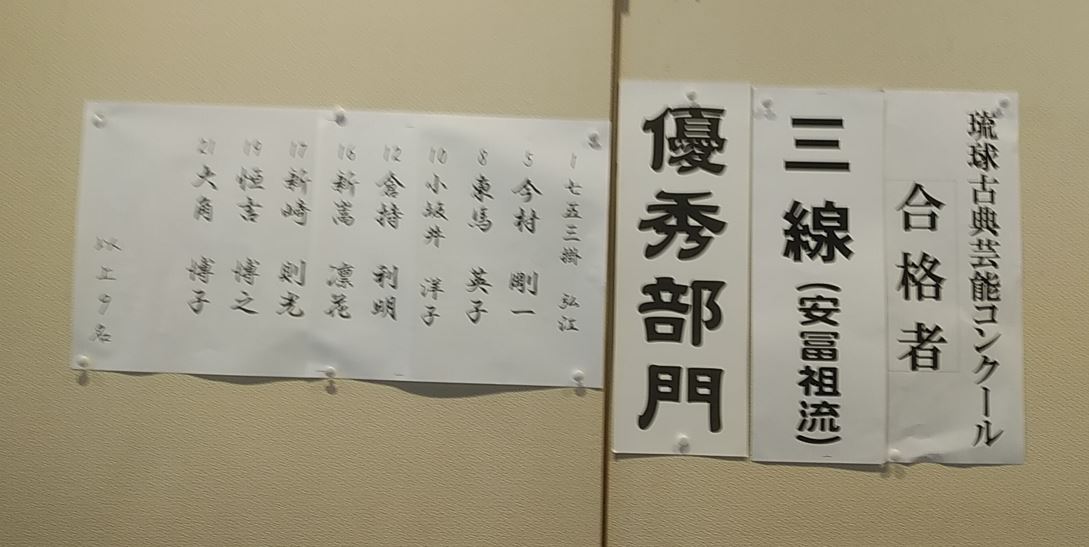 琉球古典芸能コンクール
合格者
三線(安冨祖流)
優秀部門
1 七五三掛 弘江
5 今村 剛一
8 東馬 英子
10 小坂井 洋子
12 倉持 利明
16 新嵩 凛花
17 新崎 則光
19 恒吉 博之
21 大角 博子
以上9名